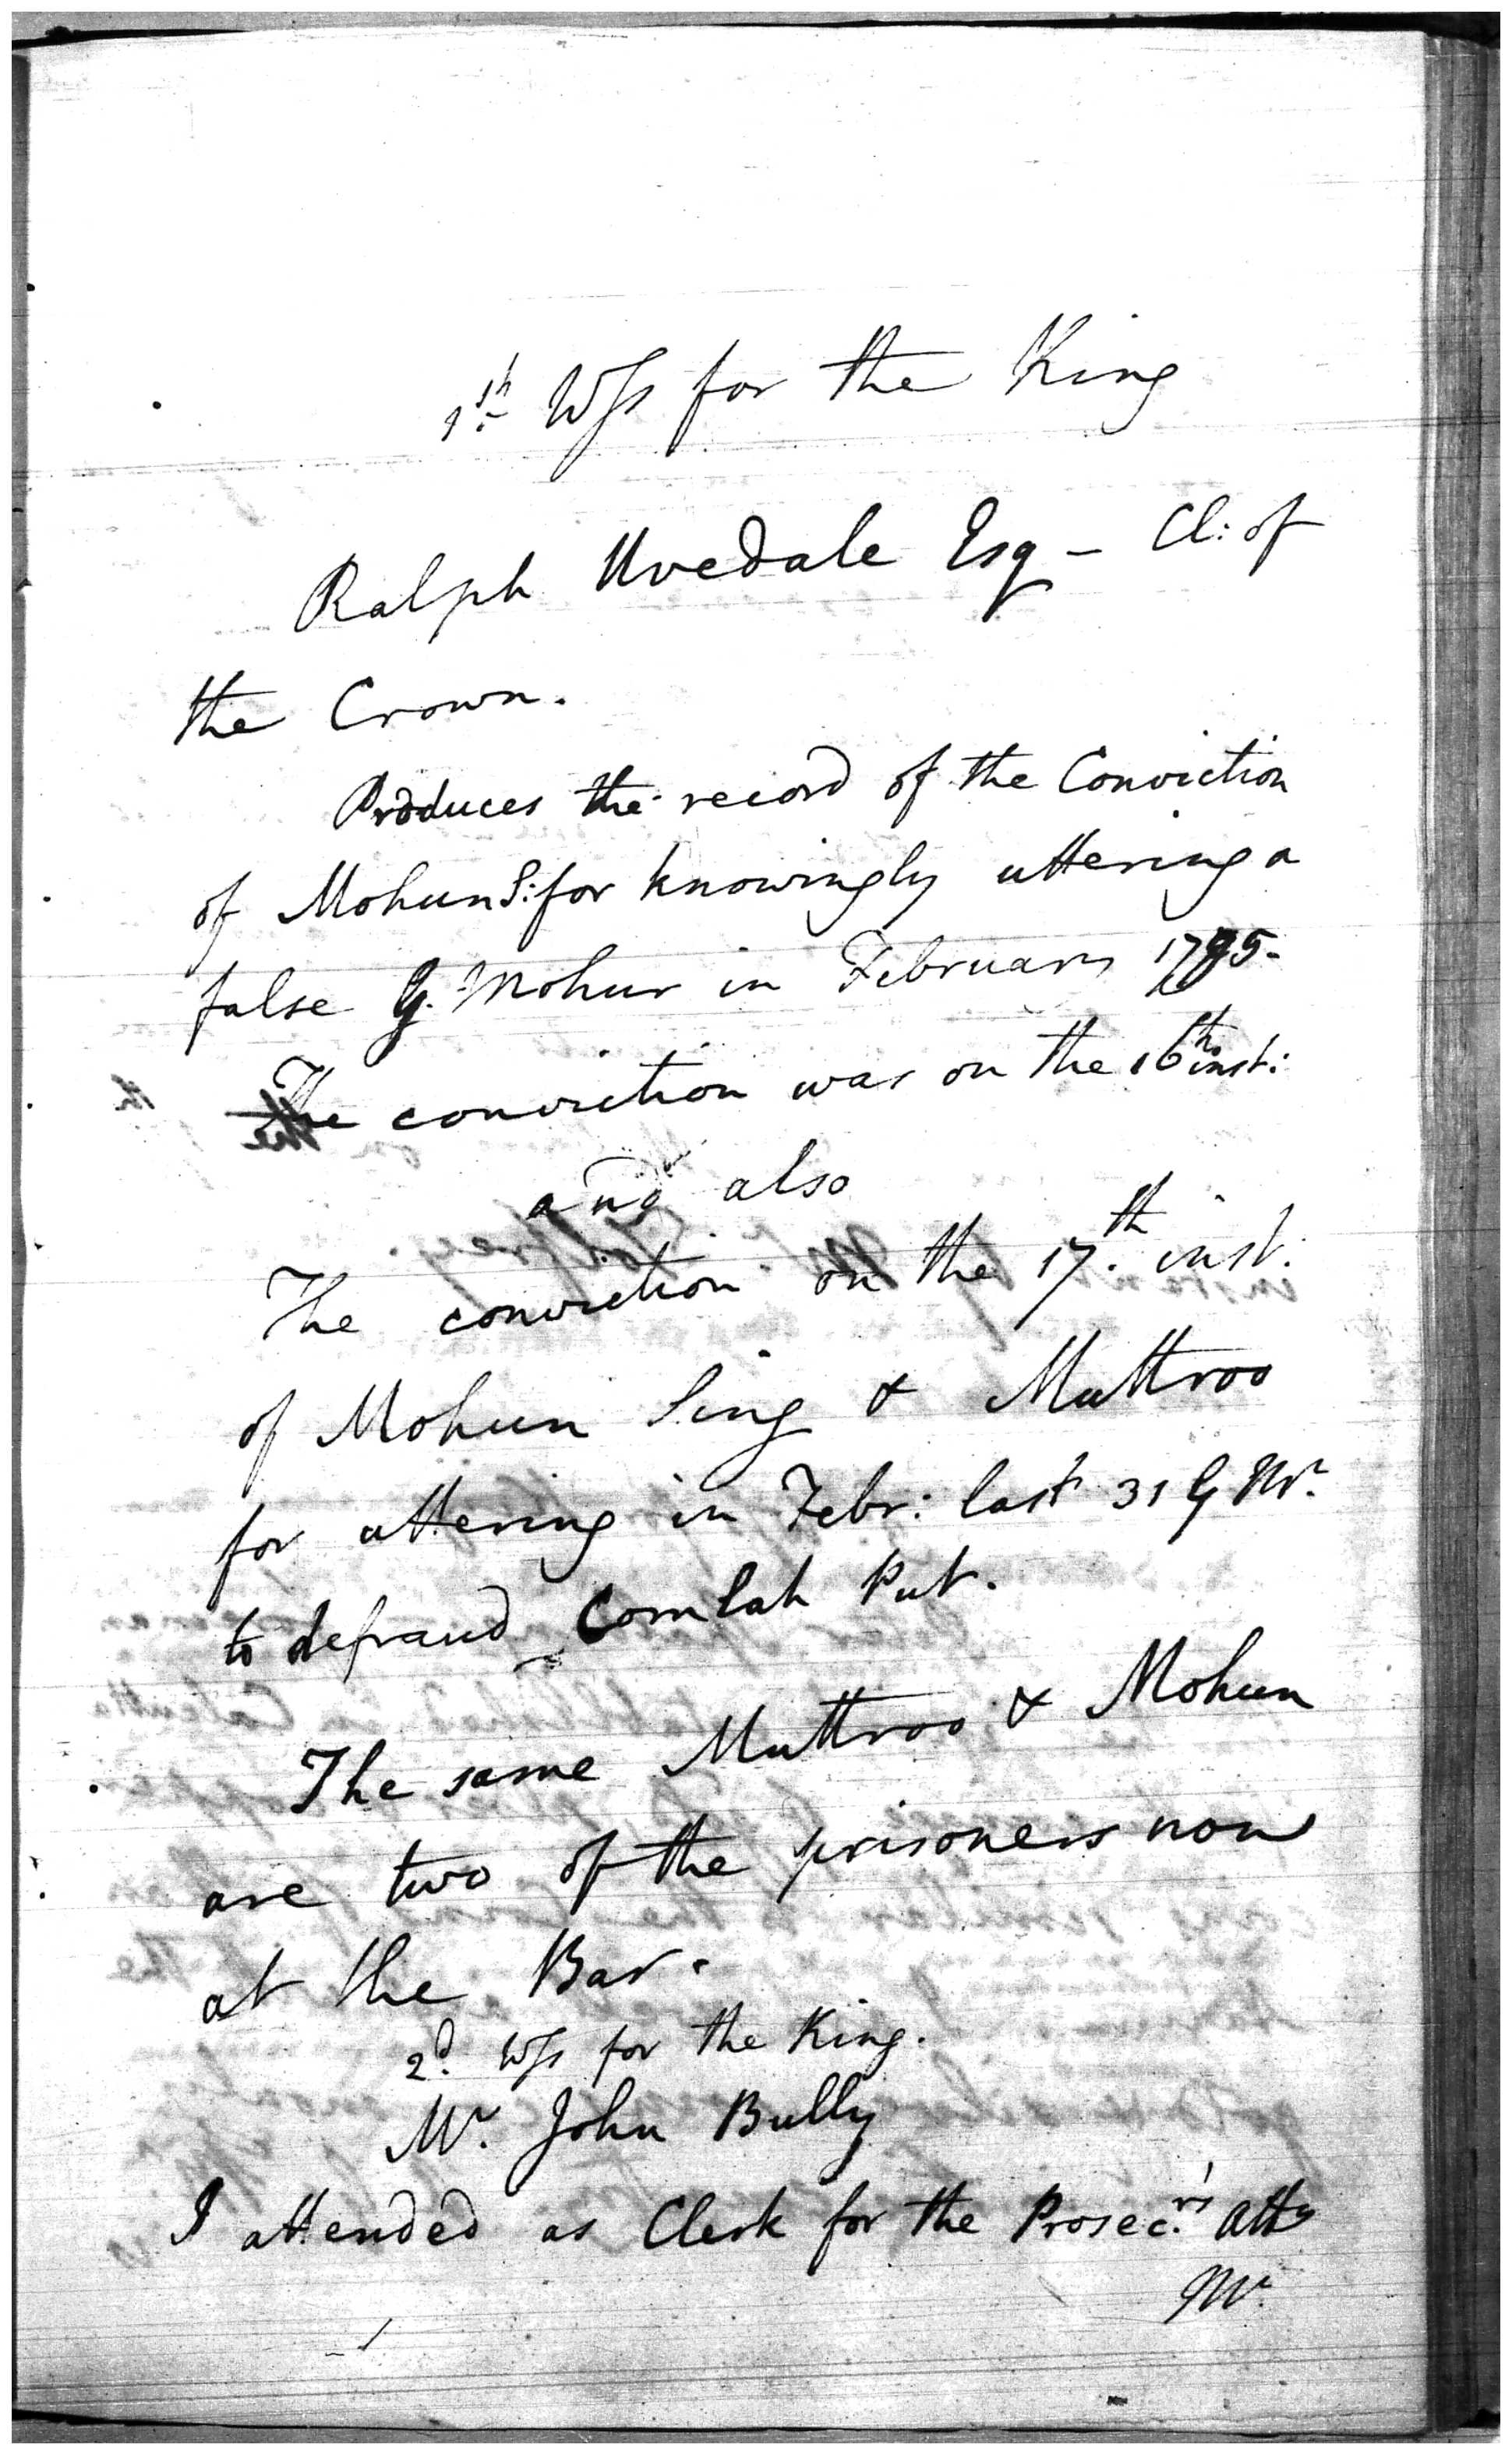 1st Wss for the King
Ralph Uvedale Esq - Cl: of
the Crown.
Produces the record of the Conviction
of Mohun S: for knowingly uttering a
false G. Mohur in February 1795-
The conviction was on the 16th inst:
and also
The conviction on the 17th inst:
of Mohun Sing & Muttroo
for uttering in Febr: last 31 G Mr.
to defraud Comlah Put.
The same Muttroo & Mohun
are two of the prisoners now
at the Bar.
2d Wss for the King.
Mr. John Bully
I attended as Clerk for the Prosecr's Atty
Mr.